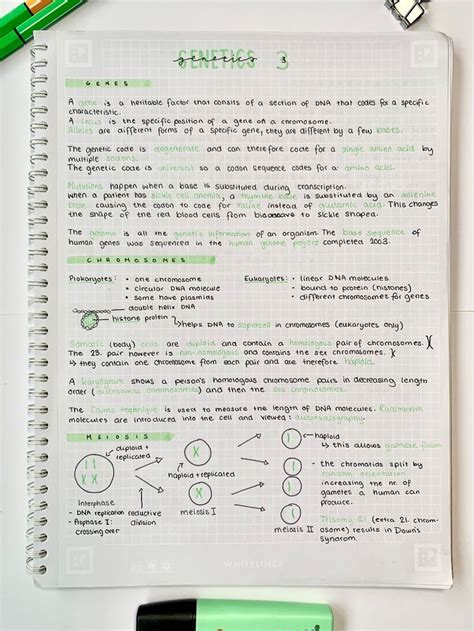 GENETICS 3
genetics
GENES
A gene is a heritable factor that consits of a section of DNA that codes for a specific
characteristic.
A locus is the specific position of a gene on a chromosome.
Alleles are different forms of a specific gene, they are different by a few bases.
The genetic code is degenerate and can therefore code for a single amino acid by
multiple codons.
The genetic code is universal so a codon sequence codes for a amino acid.
Mutations happen when a base is substituted during transcription.
when a patient has sickle cell anemia, a thymine base is substituted by an adenine
base causing the codon to code for valine instead of glutamic acid. This changes
the shape of the red blood cells from biconcave to sickle shaped.
The genome is all the genetic information of an organism. The base sequence of
human genes was sequenced in the human genome project completed 2003.
CHROMOSOMES
Prokaryotes: • one chromosome
• circular DNA molecule
• some have plasmids
Eukaryotes: • linear DNA molecules
• bound to protein (histones)
• different chromosomes for genes
double helix DNA
histone protein
helps DNA to supercoil in chromosomes (eukaryotes only)
Somatic (body) cells are diploid and contain a homologous pair of chromosomes.
The 23. pair however is non-homologous and contains the sex chromosomes.
↳ they contain one chromosome from each pair and are therefore haploid.
A karyogram shows a person's homologous chromosome pairs in decreasing length
order (autosomal chromosomes) and then the sex chromosomes.
The Cairns technique is used to measure the length of DNA molecules. Radioactive
molecules are introduced into the cell and viewed: autoradiography.
MEIOSIS
diploid +
replicated
Interphase
- DNA replication
- Prophase I:
crossing over
reductive
division
haploid + replicated
meiosis I
meiosis II
haploid
↳ this allows gamete fusion
- the chromatids split by
random orientation
increasing the nr. of
gametes a human can
produce.
Trisomy 21 (extra 21. chrom-
osome) results in Down's
WHITELINES